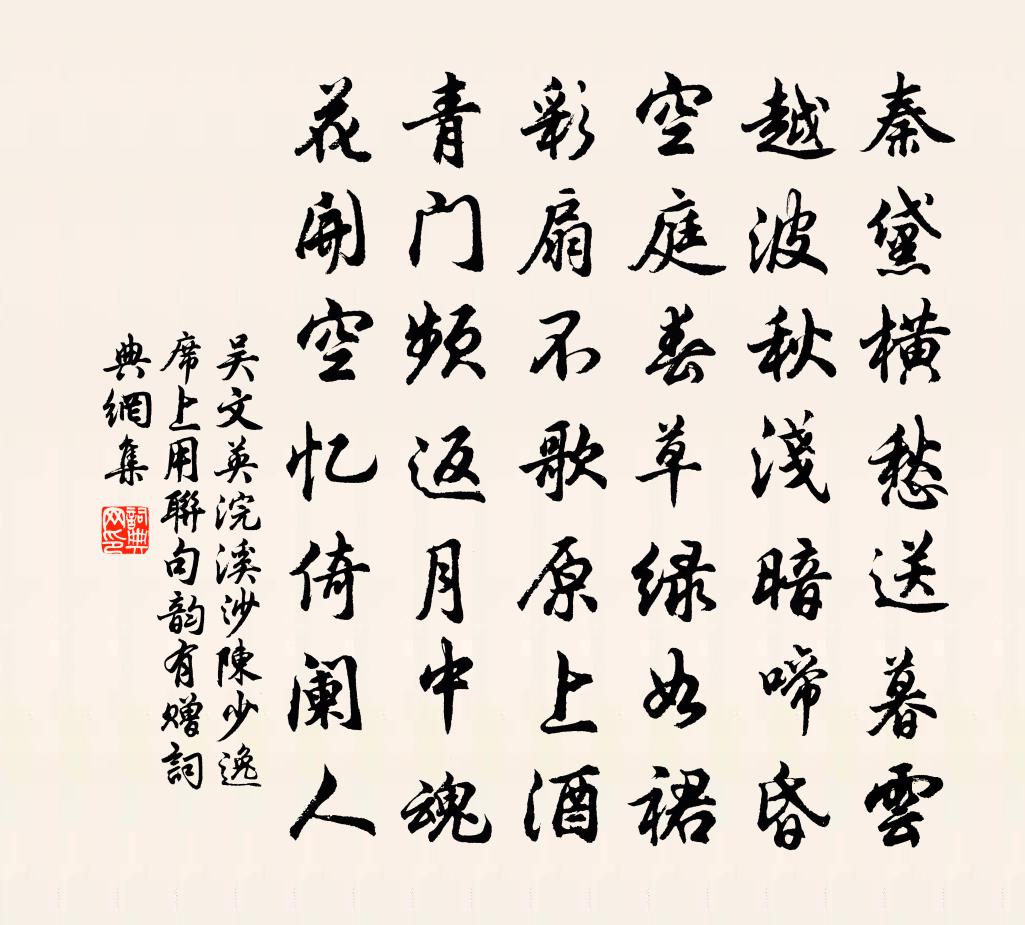 秦黛橫愁送暮雲
越波秋淺暗啼昏
空庭春草綠如裙
彩扇不歌原上酒
青门頻返月中魂
花開空忆倚阑人
吴文英浣溪沙陳少逸
席上用聯句韵有赠詞
典網集
詞典网印